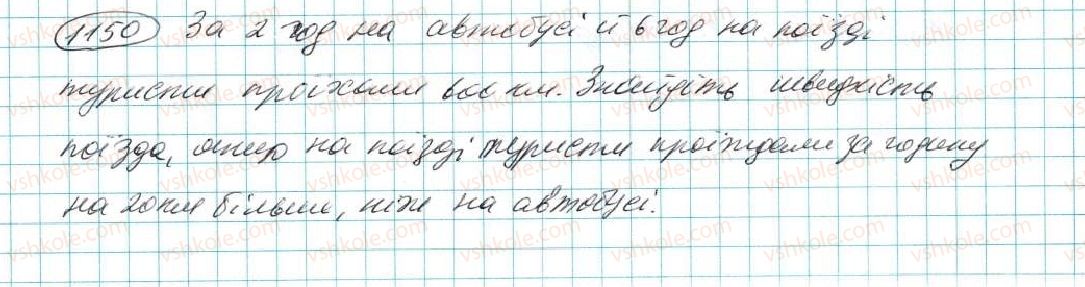 1150 За 2 год на автобусі й 6 год на поїзді
туристи проїхали 600 км. Знайдіть швидкість
поїзда, якщо на поїзді туристи проїждали за годину
на 20 км більше, ніж на автобусі.